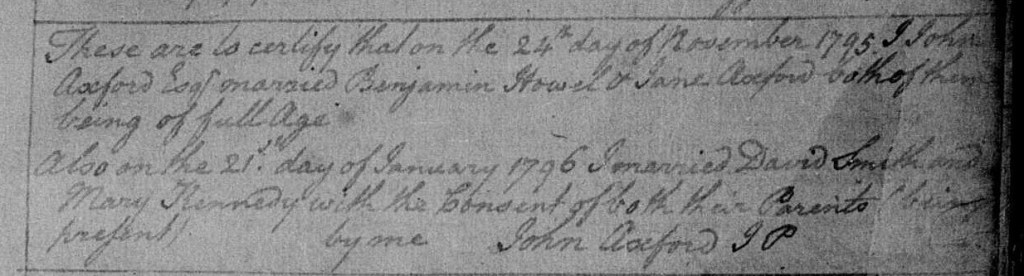 These are to certify that on the 24th day of November 1795 I John
Axford Esqr married Benjamin Howel & Jane Axford both of them
being of full Age
Also on the 21st day of January 1796 I married David Smith and
Mary Kennedy with the Consent of both their Parents (being
present) by me John Axford J P